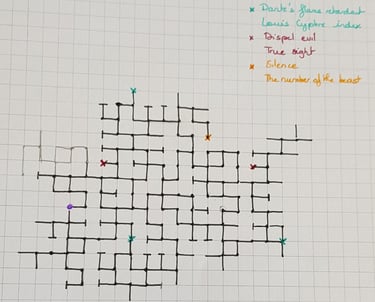 Dante's flame retardent
Louis Cyphre index
Dispel evil
True sight
Silence
The number of the beast